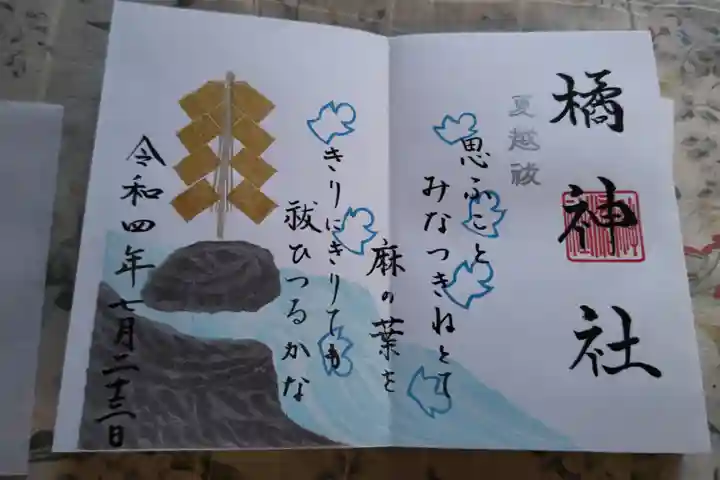 橘神社
夏越祓
思ふこと
みなつきねとて
麻の葉を
きりにきりても
祓ひつるかな
令和四年七月二十三日